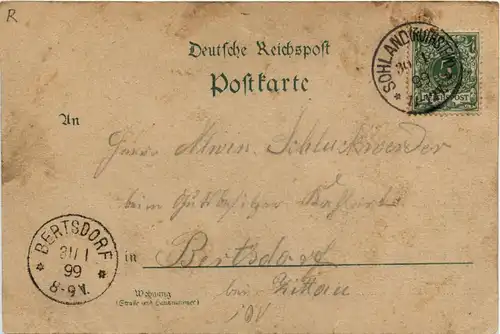 R
Deutsche Reichspost
Postkarte
SOHLAND
99
REICHSPOST
An
Herrn Alwin Schluckwerder
beim Gutsbesitzer
BERTSDORF
31/1
99
8-9V.
in Bertsdorf
bei Zittau
Wohnung
(Straße und Hausnummer)